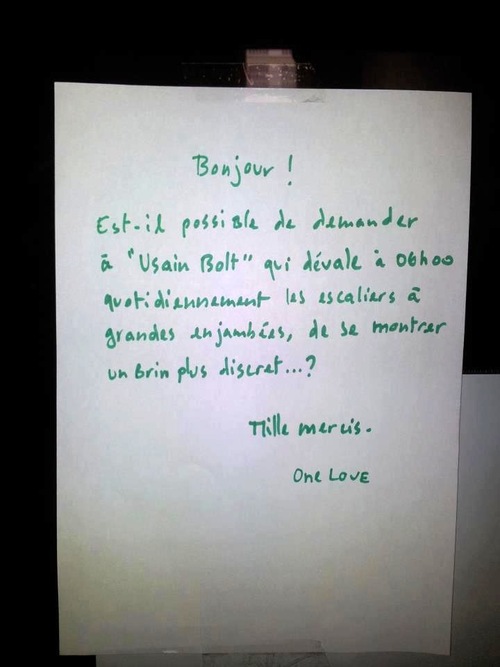 Bonjour !
Est-il possible de demander
à "Usain Bolt" qui dévale à 06h00
quotidiennement les escaliers à
grandes enjambées, de se montrer
un brin plus discret...?
Mille mercis.
One Love